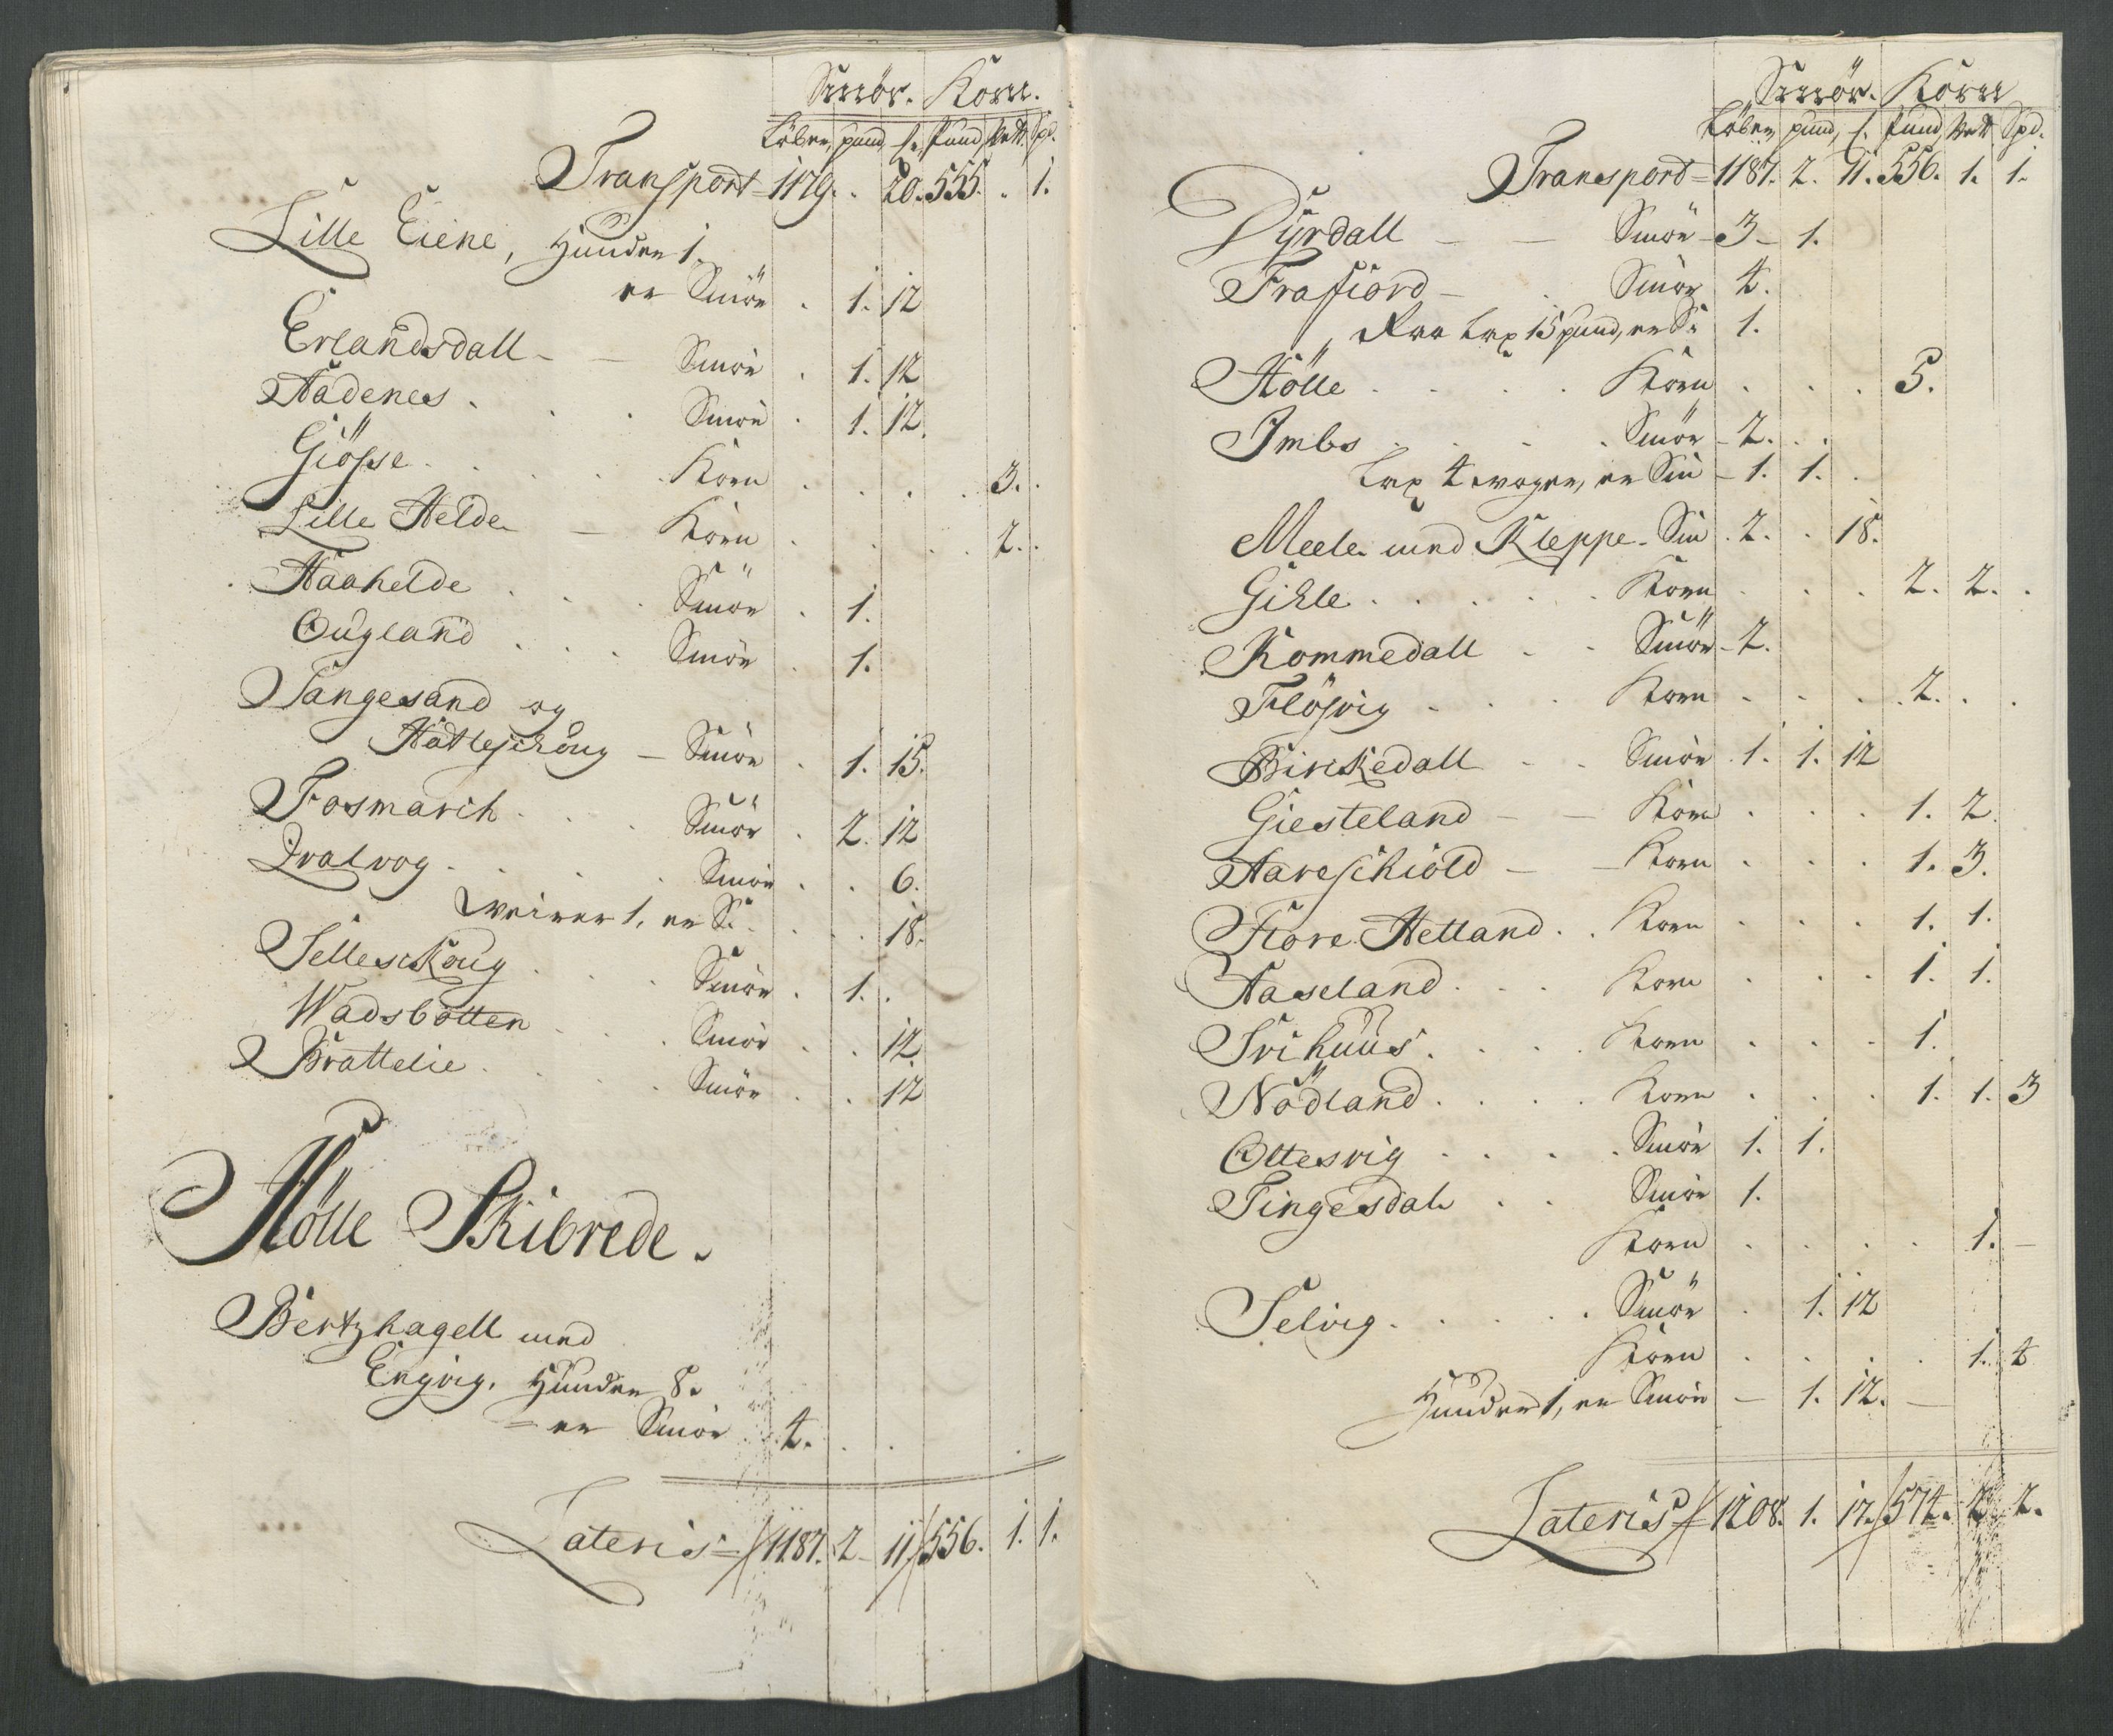 Smör. Korn.
Löber, pund, ℔. Pund, Vett. Spd.
Transport = 1179. . 20. 555. . 1.
Lille Eiene, Hunder 1.
er Smör . 1. 12
Erlandsdall - - Smör . 1. 12
Aadenes . . . Smör . 1. 12.
Giösse . . . . Korn . . . . 3. .
Lille Helde - Korn . . . . 2. .
Haahelde . . . Smör . 1.
Ougland . . . Smör . 1.
Tangesand og
Hatleschoug - Smör . 1. 15.
Fosmarch . . . Smör . 2. 12
Qvalvog . . . . Smör . . 6.
Qveiner 1, er S: . . . 18.
Selleschoug . . . Smör . 1. .
Wadsbotten . . . Smör . . 12
Brattelie . . . . Smör . . 12
Hölle Skibrede.
Bertzhagell med
Engvig. Hunder 8.
= er Smör . 4. . .
Lateris = // 1187. 2 - 11 // 556. 1. 1.
Smör. Korn
Löber, pund, ℔. Pund, Vett. Spd.
Transport = 1187. 2. 11. 556. 1. 1.
Dÿrdall - - Smör - 3 - 1.
Frafiord - . Smör 4.
Raa Lax 15 pund, er S: 1.
Hölle . . . . Korn . . . 5.
Imbs . . . . Smör - 2. . .
Lax 4 woger, er Sm - 1. 1. .
Meele med Kleppe - Sm . 2. . 18.
Gihle . . . . . Korn . . . 2. 2. .
Kommedall . . Smör - 2.
Flösvig . . . Korn . . . 2. . .
Birckedall - - Smör . 1. 1. 12
Giesteland - - Korn . . . 1. 2.
Hareschiold - - Korn . . . 1. 3.
Fiore Helland . . Korn . . . 1. 1.
Haseland . . . Korn . . . 1. 1.
Trihuus . . . . Korn . . . 1.
Nödland . . . . Korn . . . 1. 1. 3
Ottesvig . . . . Smör 1. 1.
Tingesdal . . Smör 1.
Korn . . . . 1. -
Selvig . . . . . Smör . 1. 12
Korn . . . . 1. 4
Hunder 1, er Smör - 1. 12. -
Lateris // 1208. 1. 17. // 574. 2. 2.